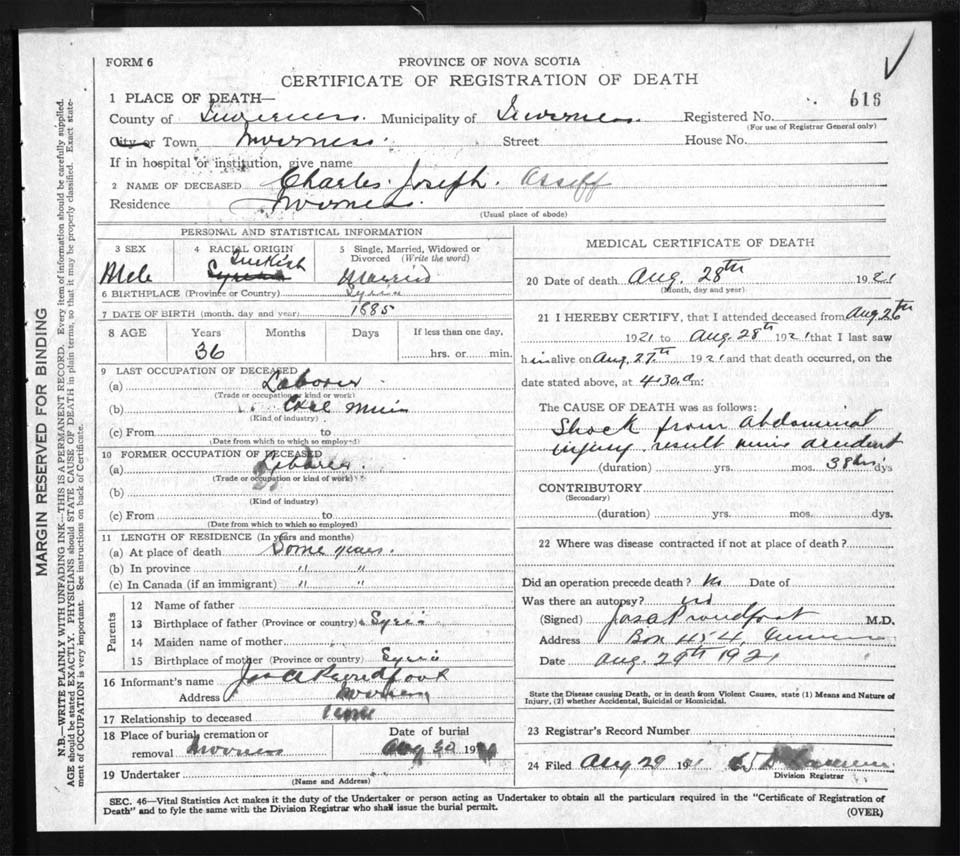 FORM 6
PROVINCE OF NOVA SCOTIA
CERTIFICATE OF REGISTRATION OF DEATH
616
1 PLACE OF DEATH—
County of Inverness. Municipality of Inverness Registered No.
(For use of Registrar General only)
City or Town Inverness. Street House No.
If in hospital or institution, give name
2 NAME OF DECEASED Charles Joseph. Assiff
Residence Inverness.
(Usual place of abode)
PERSONAL AND STATISTICAL INFORMATION
3 SEX 4 RACIAL ORIGIN 5 Single, Married, Widowed or
Divorced (Write the word)
Turkish
Male Syrian Married
6 BIRTHPLACE (Province or Country) Syria
7 DATE OF BIRTH (month, day and year) 1885
8 AGE Years Months Days If less than one day,
36 hrs. or min.
9 LAST OCCUPATION OF DECEASED
(a) Laborer
(Trade or occupation or kind of work)
(b) Coal Mine
(Kind of industry)
(c) From to
(Date from which to which so employed)
10 FORMER OCCUPATION OF DECEASED
(a) Laborer
(Trade or occupation or kind of work)
(b)
(Kind of industry)
(c) From to
(Date from which to which so employed)
11 LENGTH OF RESIDENCE (In years and months)
(a) At place of death Some years.
(b) In province " "
(c) In Canada (if an immigrant) " "
Parents
12 Name of father
13 Birthplace of father (Province or country) Syria
14 Maiden name of mother
15 Birthplace of mother (Province or country) Syria
16 Informant's name Jas A Proudfoot
Address Inverness
17 Relationship to deceased none
18 Place of burial, cremation or Date of burial
removal Inverness Aug 30 19
19 Undertaker
(Name and Address)
MEDICAL CERTIFICATE OF DEATH
20 Date of death Aug. 28th 1921
(Month, day and year)
21 I HEREBY CERTIFY, that I attended deceased from Aug 26th
1921 to Aug. 28th 1921 that I last saw
him alive on Aug. 27th 1921 and that death occurred, on the
date stated above, at 4.30 a m:
The CAUSE OF DEATH was as follows:
Shock from abdominal
injury. result mine accident
(duration) yrs. mos. 38 hrs dys
CONTRIBUTORY
(Secondary)
(duration) yrs. mos. dys.
22 Where was disease contracted if not at place of death?
Did an operation precede death? No Date of
Was there an autopsy? no
(Signed) Jas A Proudfoot M.D.
Address Box 454, Inverness
Date Aug. 29th 1921
State the Disease causing Death, or in death from Violent Causes, state (1) Means and Nature of
Injury, (2) whether Accidental, Suicidal or Homicidal.
23 Registrar's Record Number
24 Filed Aug 29 1921
Division Registrar
SEC. 46—Vital Statistics Act makes it the duty of the Undertaker or person acting as Undertaker to obtain all the particulars required in the "Certificate of Registration of
Death" and to fyle the same with the Division Registrar who shall issue the burial permit.
(OVER)
MARGIN RESERVED FOR BINDING
N.B.—WRITE PLAINLY WITH UNFADING INK—THIS IS A PERMANENT RECORD. Every item of information should be carefully supplied.
AGE should be stated EXACTLY. PHYSICIANS should STATE CAUSE OF DEATH in plain terms, so that it may be properly classified. Exact state-
ment of OCCUPATION is very important. See instructions on back of Certificate.